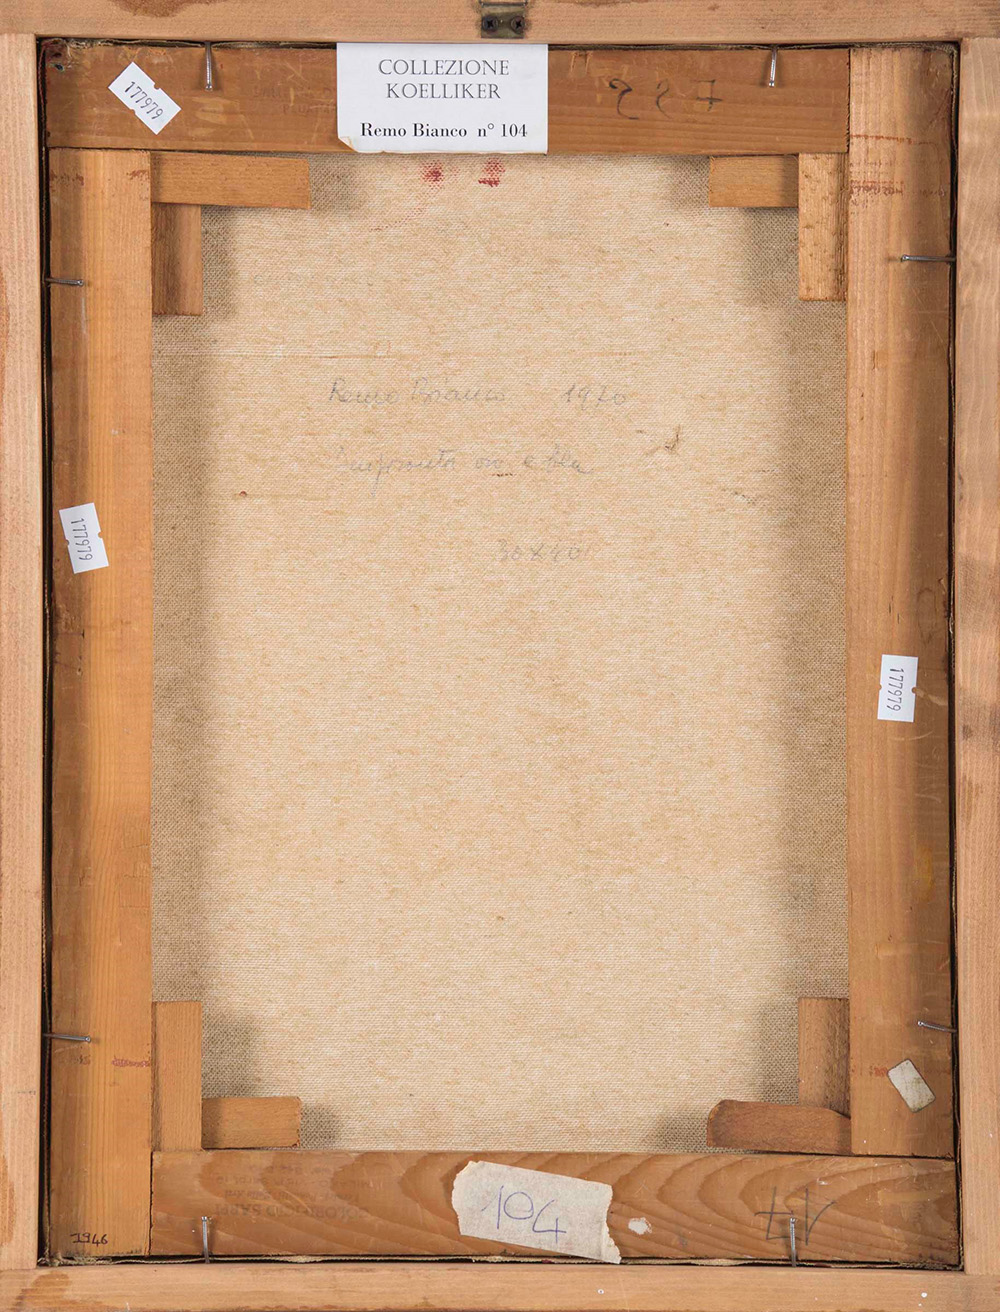 COLLEZIONE
KOELLIKER
Remo Bianco n° 104
177979
Remo Bianco 1970
Impronta oro e blu
30x40
177979
177979
104
1946